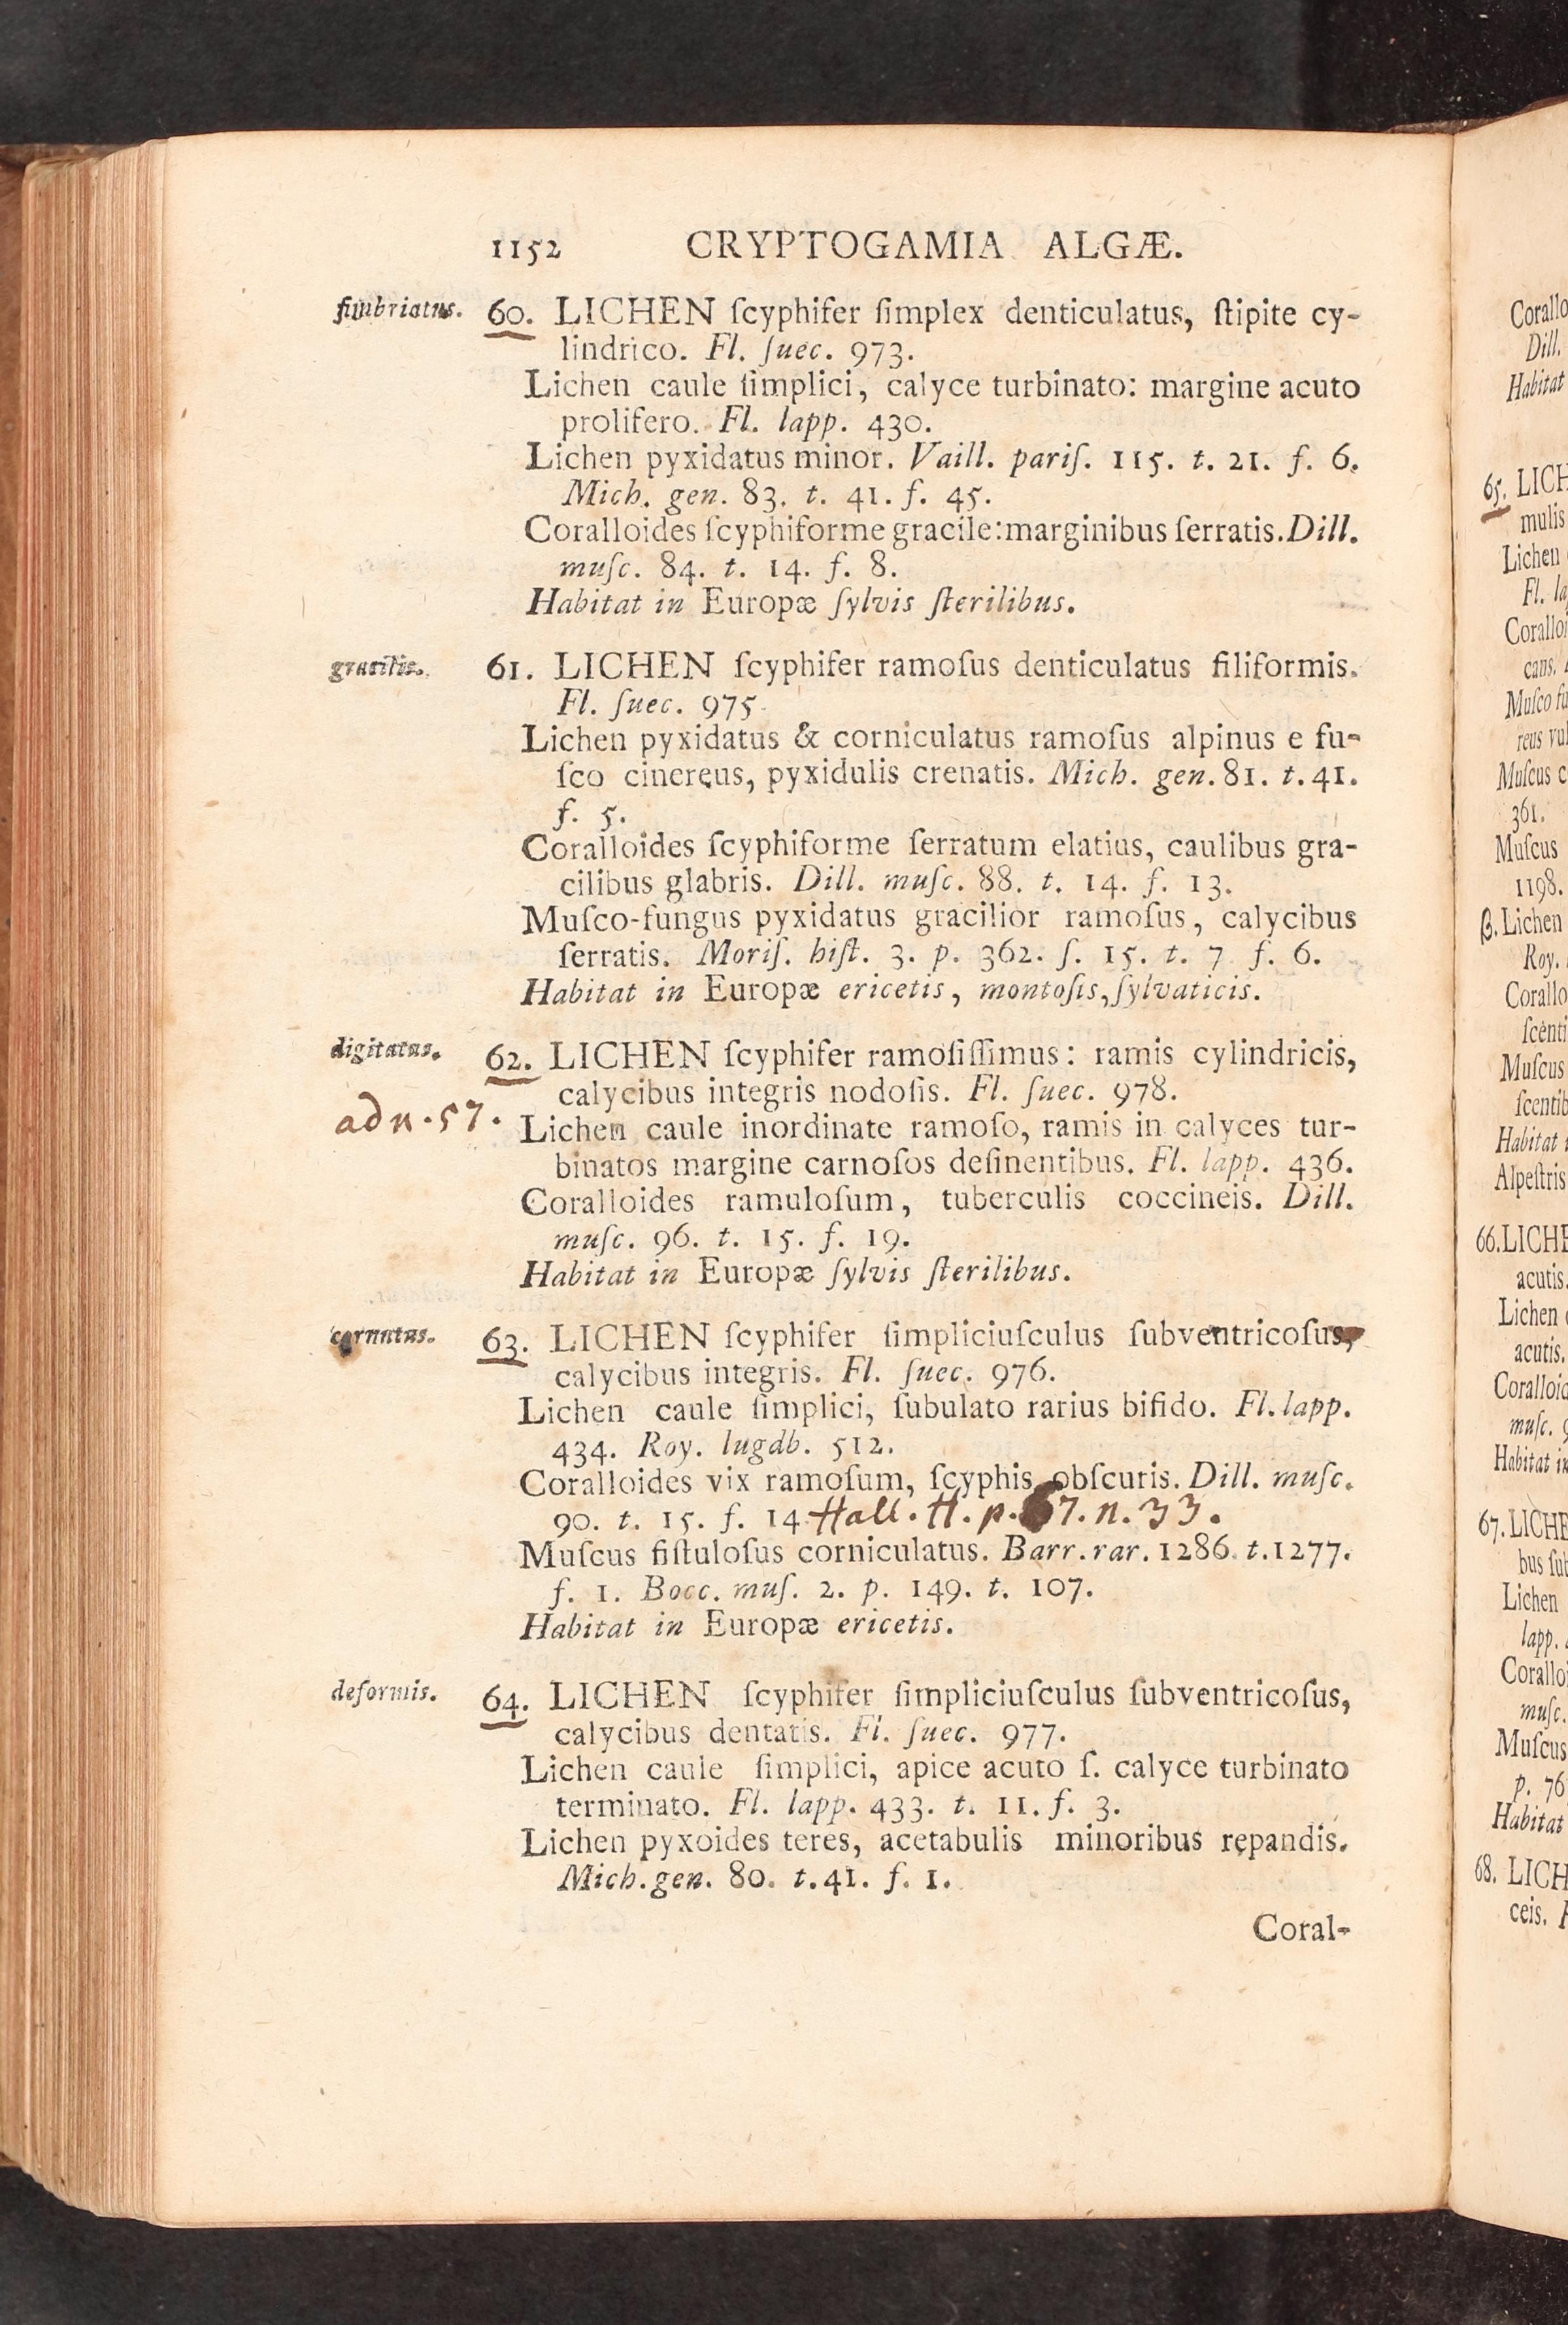 1152 CRYPTOGAMIA ALGÆ.
fimbriatus. 60. LICHEN ſcyphifer ſimplex denticulatus, ſtipite cy-
lindrico. Fl. ſuec. 973.
Lichen caule ſimplici, calyce turbinato: margine acuto
prolifero. Fl. lapp. 430.
Lichen pyxidatus minor. Vaill. pariſ. 115. t. 21. f. 6.
Mich. gen. 83. t. 41. f. 45.
Coralloides ſcyphiforme gracile: marginibus ſerratis. Dill.
muſc. 84. t. 14. f. 8.
Habitat in Europæ ſylvis ſterilibus.
gracilis. 61. LICHEN ſcyphifer ramoſus denticulatus filiformis.
Fl. ſuec. 975.
Lichen pyxidatus & corniculatus ramoſus alpinus e fu-
ſco cinereus, pyxidulis crenatis. Mich. gen. 81. t. 41.
f. 5.
Coralloides ſcyphiforme ſerratum elatius, caulibus gra-
cilibus glabris. Dill. muſc. 88. t. 14. f. 13.
Muſco-fungus pyxidatus gracilior ramoſus, calycibus
ſerratis. Moriſ. hiſt. 3. p. 362. ſ. 15. t. 7 f. 6.
Habitat in Europæ ericetis, montoſis, ſylvaticis.
digitatus. 62. LICHEN ſcyphifer ramoſiſſimus: ramis cylindricis,
calycibus integris nodoſis. Fl. ſuec. 978.
adn. 57.
Lichen caule inordinate ramoſo, ramis in calyces tur-
binatos margine carnoſos deſinentibus. Fl. lapp. 436.
Coralloides ramuloſum, tuberculis coccineis. Dill.
muſc. 96. t. 15. f. 19.
Habitat in Europæ ſylvis ſterilibus.
cornutus. 63. LICHEN ſcyphifer ſimpliciuſculus ſubventricoſus,
calycibus integris. Fl. ſuec. 976.
Lichen caule ſimplici, ſubulato rarius bifido. Fl. lapp.
434. Roy. lugdb. 512.
Coralloides vix ramoſum, ſcyphis obſcuris. Dill. muſc.
90. t. 15. f. 14. Hall. H. p. 67. n. 33.
Muſcus fiſtuloſus corniculatus. Barr. rar. 1286. t. 1277.
f. 1. Bocc. muſ. 2. p. 149. t. 107.
Habitat in Europæ ericetis.
deformis. 64. LICHEN ſcyphifer ſimpliciuſculus ſubventricoſus,
calycibus dentatis. Fl. ſuec. 977.
Lichen caule ſimplici, apice acuto ſ. calyce turbinato
terminato. Fl. lapp. 433. t. 11. f. 3.
Lichen pyxoides teres, acetabulis minoribus repandis.
Mich. gen. 80. t. 41. f. 1.
Coral-
Corallo
Dill.
Habitat
65. LICH
mulis
Lichen
Fl. la
Coralloi
cans.
Muſco fu
reus vul
Muſcus c
361.
Muſcus
1198.
β. Lichen
Roy.
Corallo
ſcenti
Muſcus
ſcentib
Habitat
Alpeſtris
66. LICHE
acutis.
Lichen
acutis.
Coralloid
muſc. 9
Habitat in
67. LICHE
bus ſub
Lichen
lapp.
Corallo
muſc.
Muſcus
p. 76
Habitat
68. LICH
ceis.